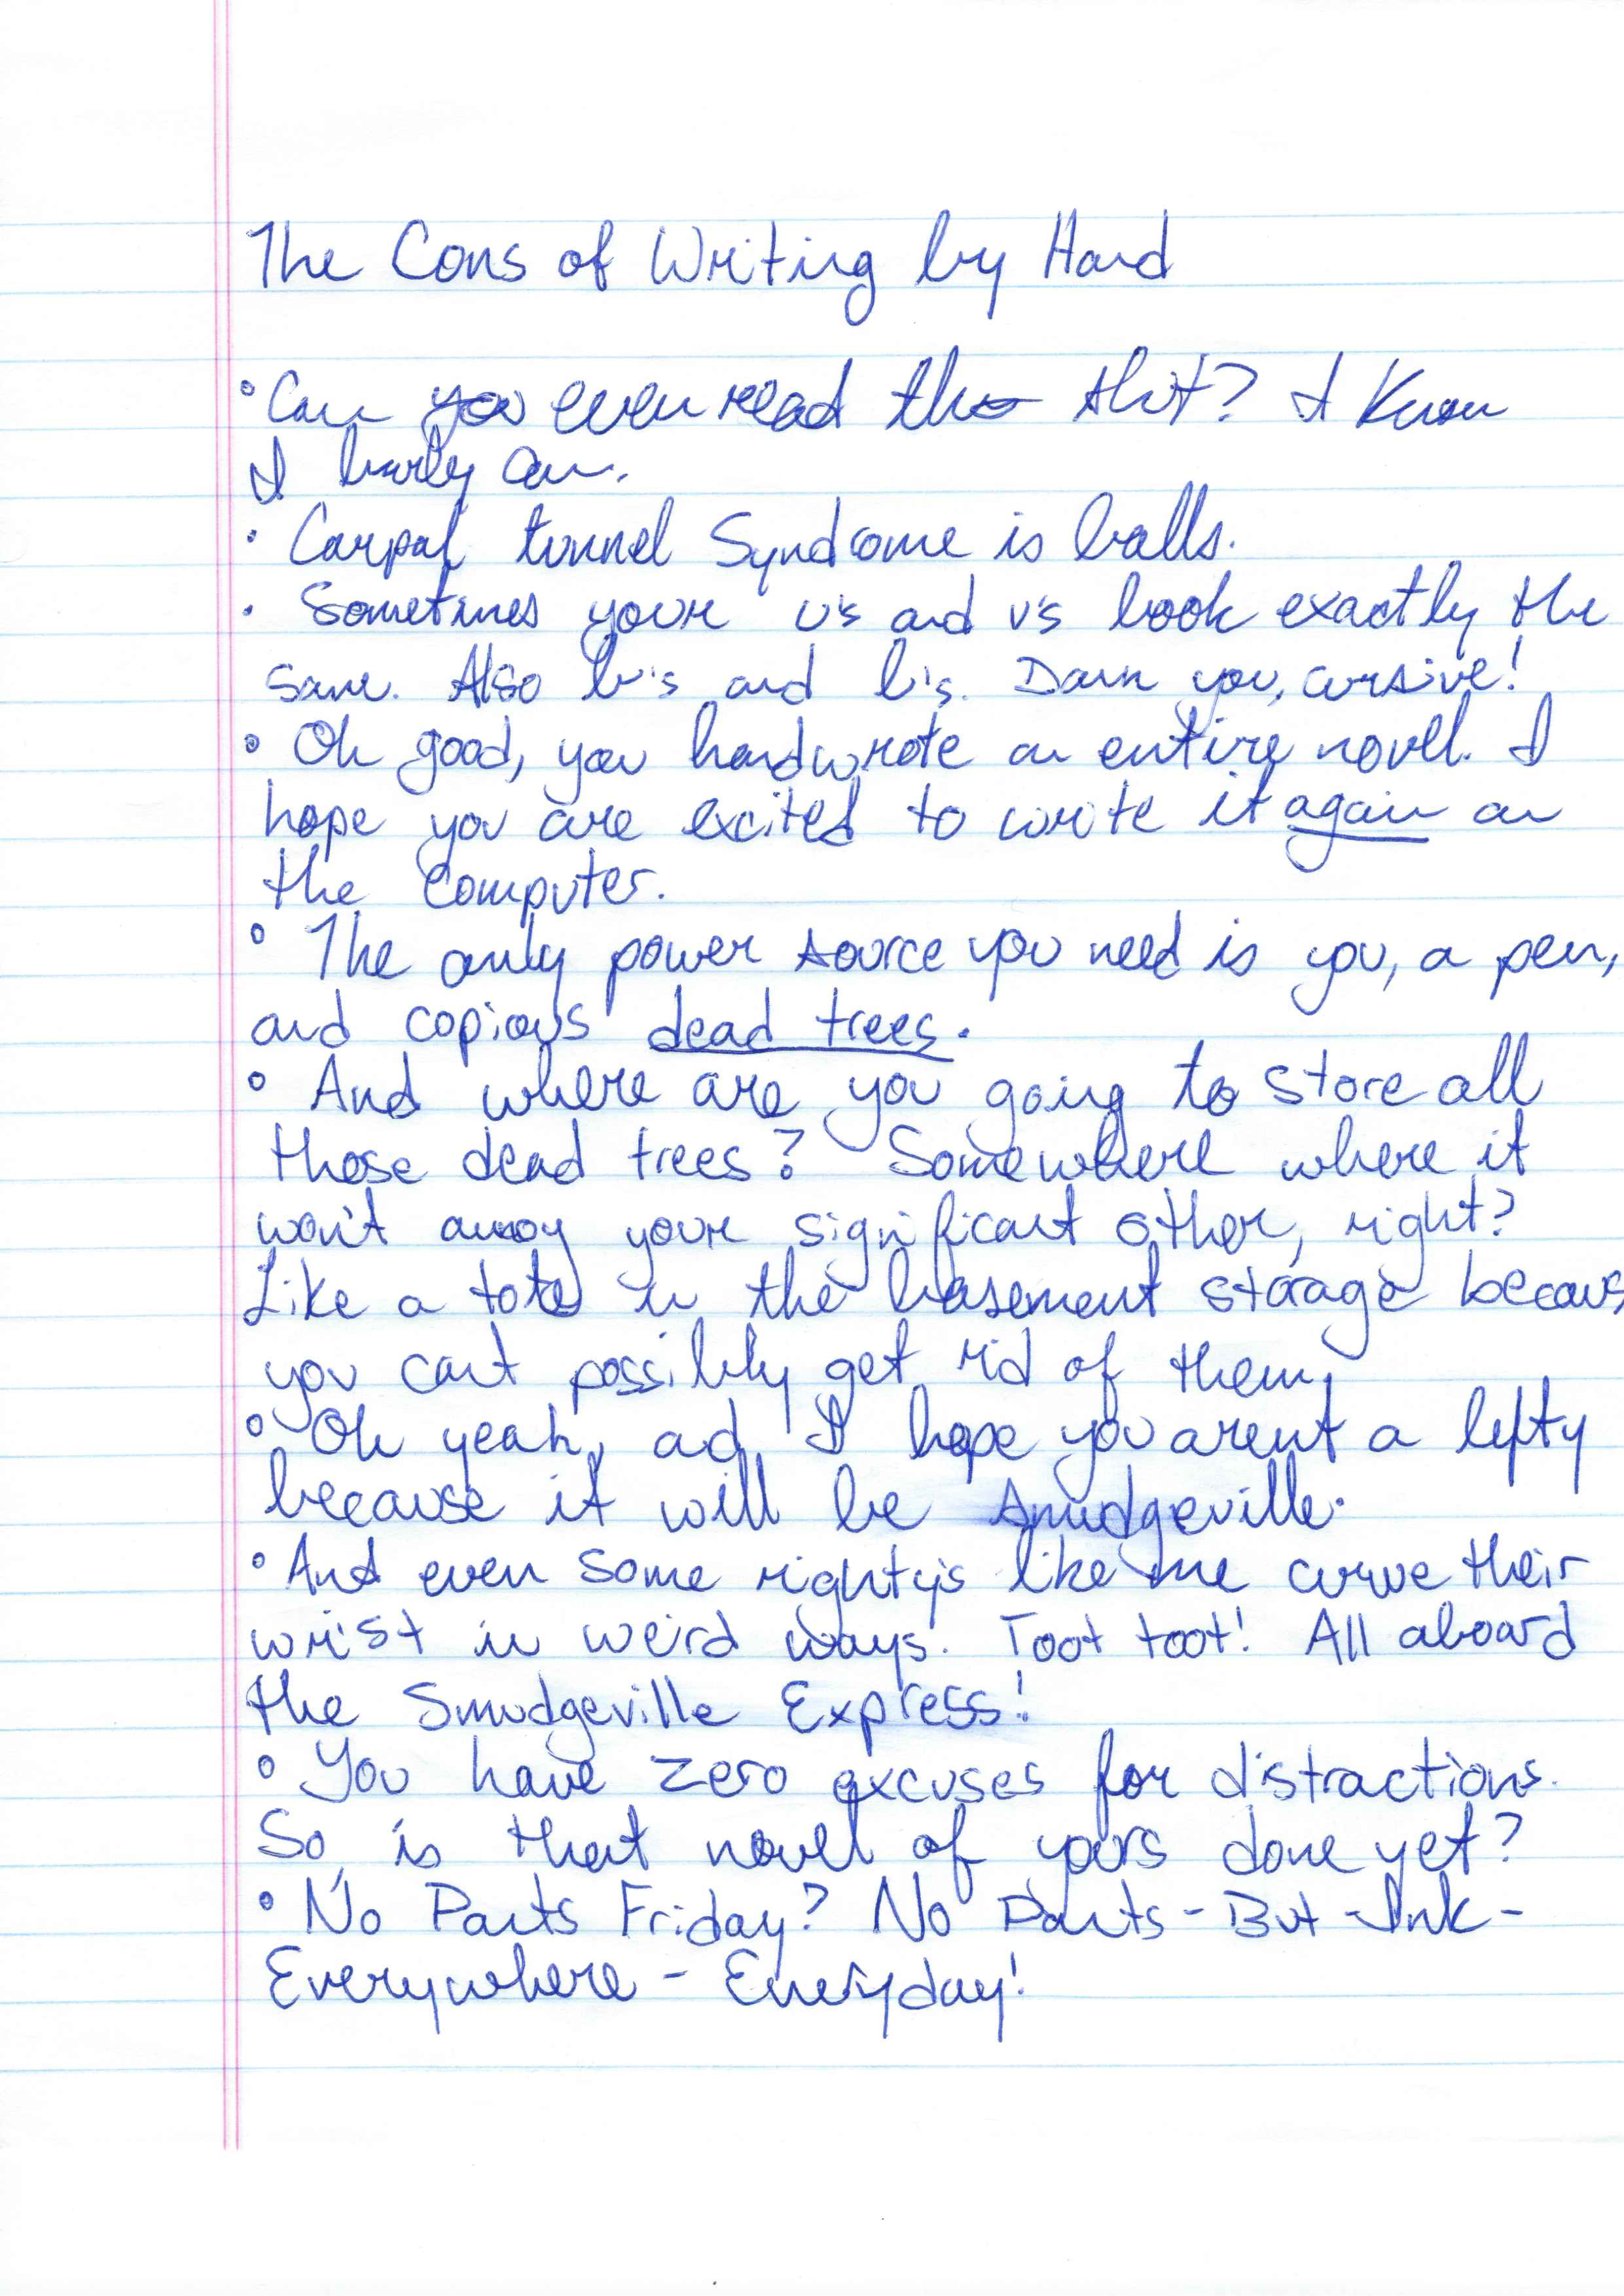 The Cons of Writing by Hand
• Can you even read this shit? I know
I barely can.
• Carpal tunnel Syndrome is balls.
• Sometimes your u's and v's look exactly the
same. Also b's and l's. Damn you, cursive!
• Oh good, you handwrote an entire novel. I
hope you are excited to write it again on
the computer.
• The only power source you need is you, a pen,
and copious dead trees.
• And where are you going to store all
those dead trees? Somewhere where it
won't annoy your significant other, right?
Like a tote in the basement storage becaus
you can't possibly get rid of them.
• Oh yeah, ad I hope you arent a lefty
because it will be Smudgeville.
• And even some righty's like me curve their
wrist in weird ways. Toot toot! All aboard
the Smudgeville Express!
• You have zero excuses for distractions.
So is that novel of yours done yet?
• No Pants Friday? No Pants-But-Ink-
Everywhere-Everyday!